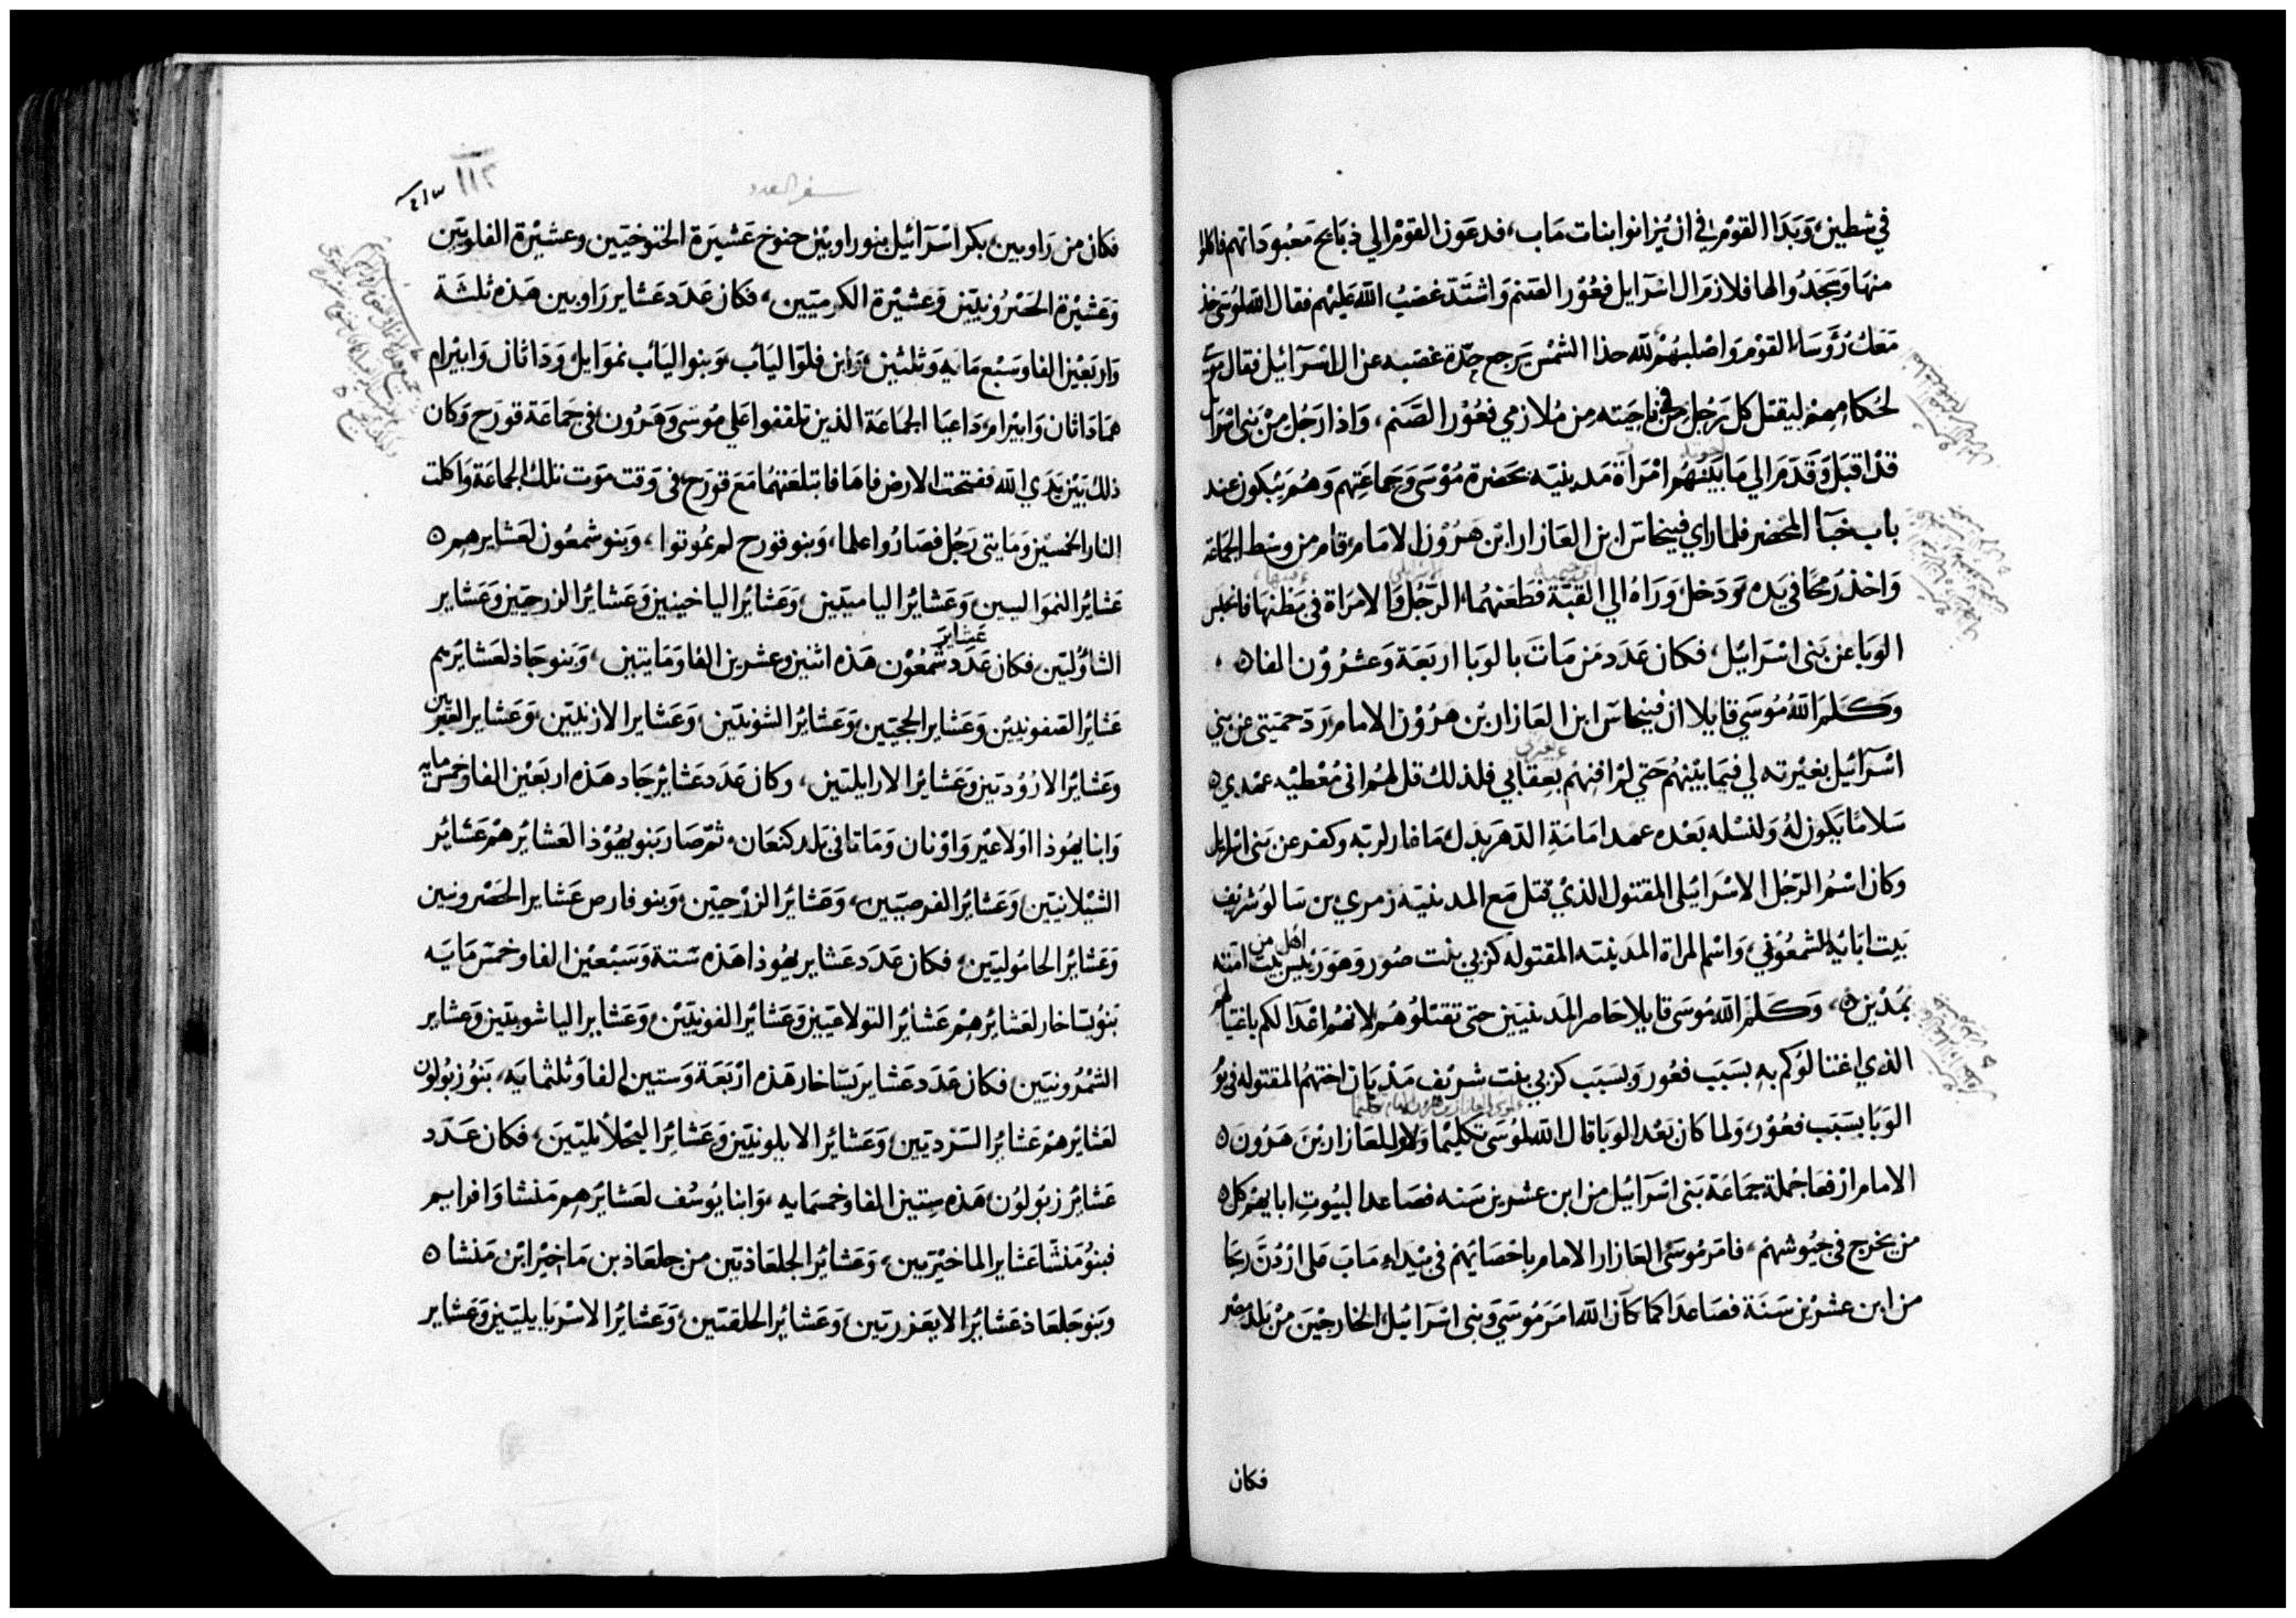 في شطين، وبدا القوم في ان يزانوا بنات ماب، فدعون القوم الي ذبايح معبوداتهم فاكلوا
منها وسجدوا لها فلازم ال اسرايل فعور الصنم واشتد غضب الله عليهم فقال الله لموسى خذ
معك رؤساء القوم واصلبهم لله حذا الشمس يرجع حدة غضبه عن ال اسرائيل فقال موسى
لحكامهم ليقتل كل رجل من في ناحيته من ملازمي فعور الصنم، واذا رجل من بني اسرايل
قد اقبل وقدم الي ما بينهم امراة مدينية بحضرة موسى وجماعتهم وهم يبكون عند
باب خبأ المحضر فلما راي فينحاس ابن العازار ابن هرون الامام، قام من وسط الجماعة
واخذ رمحا في يده ودخل وراه الي القبة فطعنهما، الرجل والامراة في بطنها فانحبس
الوبا عن بني اسرائيل، فكان عدد من مات بالوبا اربعة وعشرون الفا ه
وكلم الله موسى قايلا ان فينحاس ابن العازار بن هرون الامام، رد حميتي عن بني
اسرآئيل بغيرته لي فيما بينهم حتي لم افنهم بعقابي فلذلك قل لهم اني معطيه عهدي ه
سلاما يكون له ولنسله بعده عهد امامة الدهر بدل ما غار لربه وكفر عن بني اسرايل
وكان اسم الرجل الاسرائيلي المقتول الذي قتل مع المدينية زمري بن سالو شريف
بيت ابايه الشمعوني، واسم المراة المدينية المقتولة كزبي بنت صور وهو رئيس اهل من بيت امته
بمدين ه، وكلم الله موسى قايلا حاصر المدينيين حتى تقتلوهم لانهم اعدآ لكم باغتيالهم
الذي اغتالوكم به بسبب فعور وبسبب كزبي بنت شريف مديان اختهم المقتولة في يوم
الوبا بسبب فعور، ولما كان بعد الوبا قال الله لموسى تكليما ولالعازار بن هرون ه
الامام ارفعا جملة جماعة بني اسرآئيل من ابن عشرين سنه فصاعدا لبيوت ابايهم كل ه
من يخرج في جيوشهم، فامر موسى العازار الامام باحصايهم في بيداء ماب على اردن ريحا
من ابن عشرين سنة فصاعدا كما كان الله امر موسى وبني اسرآئيل، الخارجين من بلد مصر
فكان
سفر العدد
١١٢
فكان من راوبين، بكر اسرآئيل بنو راوبين حنوخ عشيرة الحنوخيين وعشيرة الفلويين
وعشيرة الحصرونيين وعشيرة الكرميين، فكان عدد عشاير راوبين هذه ثلثة
واربعين الفا وسبع مايه وثلثين، وابن فلوا الياب، وبنوا الياب نموايل، وداثان وابيرام
هما داثان وابيرام، داعيا الجماعة الذين تلقفوا علي موسى وهرون في جماعة قورح وكان
ذلك بين يدي الله ففتحت الارض فاها فابتلعتهما مع قورح، في وقت موت تلك الجماعة واكلت
النار الخمسين ومايتي رجل فصاروا علما، وبنو قورح لم يموتوا، وبنو شمعون لعشايرهم ه
عشائر النموالين وعشائر الياميين، وعشائر الياخينيين وعشائر الزرحيين وعشاير
الشاؤليين، فكان عدد عشاير شمعون هذه اثنين وعشرين الفا ومايتين، وبنو جاذ لعشايرهم
عشائر الصفونيين وعشاير الحجيين وعشائر الشونيين، وعشاير الازنيين، وعشاير العريين
وعشائر الارؤديين وعشائر الارايليين، وكان عدد عشائر جاد هذه اربعين الفا وخمس مايه
وابنا يهوذا اولا عير واونان وماتا في بلد كنعان، ثم صار بنو يهوذا لعشايرهم عشائر
الشيلانيين وعشائر الفرصيين، وعشائر الزرحيين، وبنو فارص عشاير الحصرونيين
وعشائر الحاموليين، فكان عدد عشاير يهوذا هذه ستة وسبعين الفا وخمس مايه
بنو يساخار لعشائرهم عشائر التولاعيين وعشائر الفونيين، وعشاير الياشوبيين وعشاير
الشمرونيين فكان عدد عشاير يساخار هذه اربعة وستين الفا وثلثمايه، بنو زبولون
لعشائرهم عشائر السرديين، وعشائر الايلونيين وعشائر اليحلأيليين، فكان عدد
عشائر زبولون هذه ستين الفا وخمسمايه، وابنا يوسف لعشائرهم منشا وافرايم
فبنو منشا عشاير الماخيريين، وعشائر الجلعاذيين من جلعاذ بن ماخير ابن منشا ه
وبنو جلعاذ عشائر الايعزريين، وعشائر الحلقيين، وعشائر الاسرياييليين وعشاير